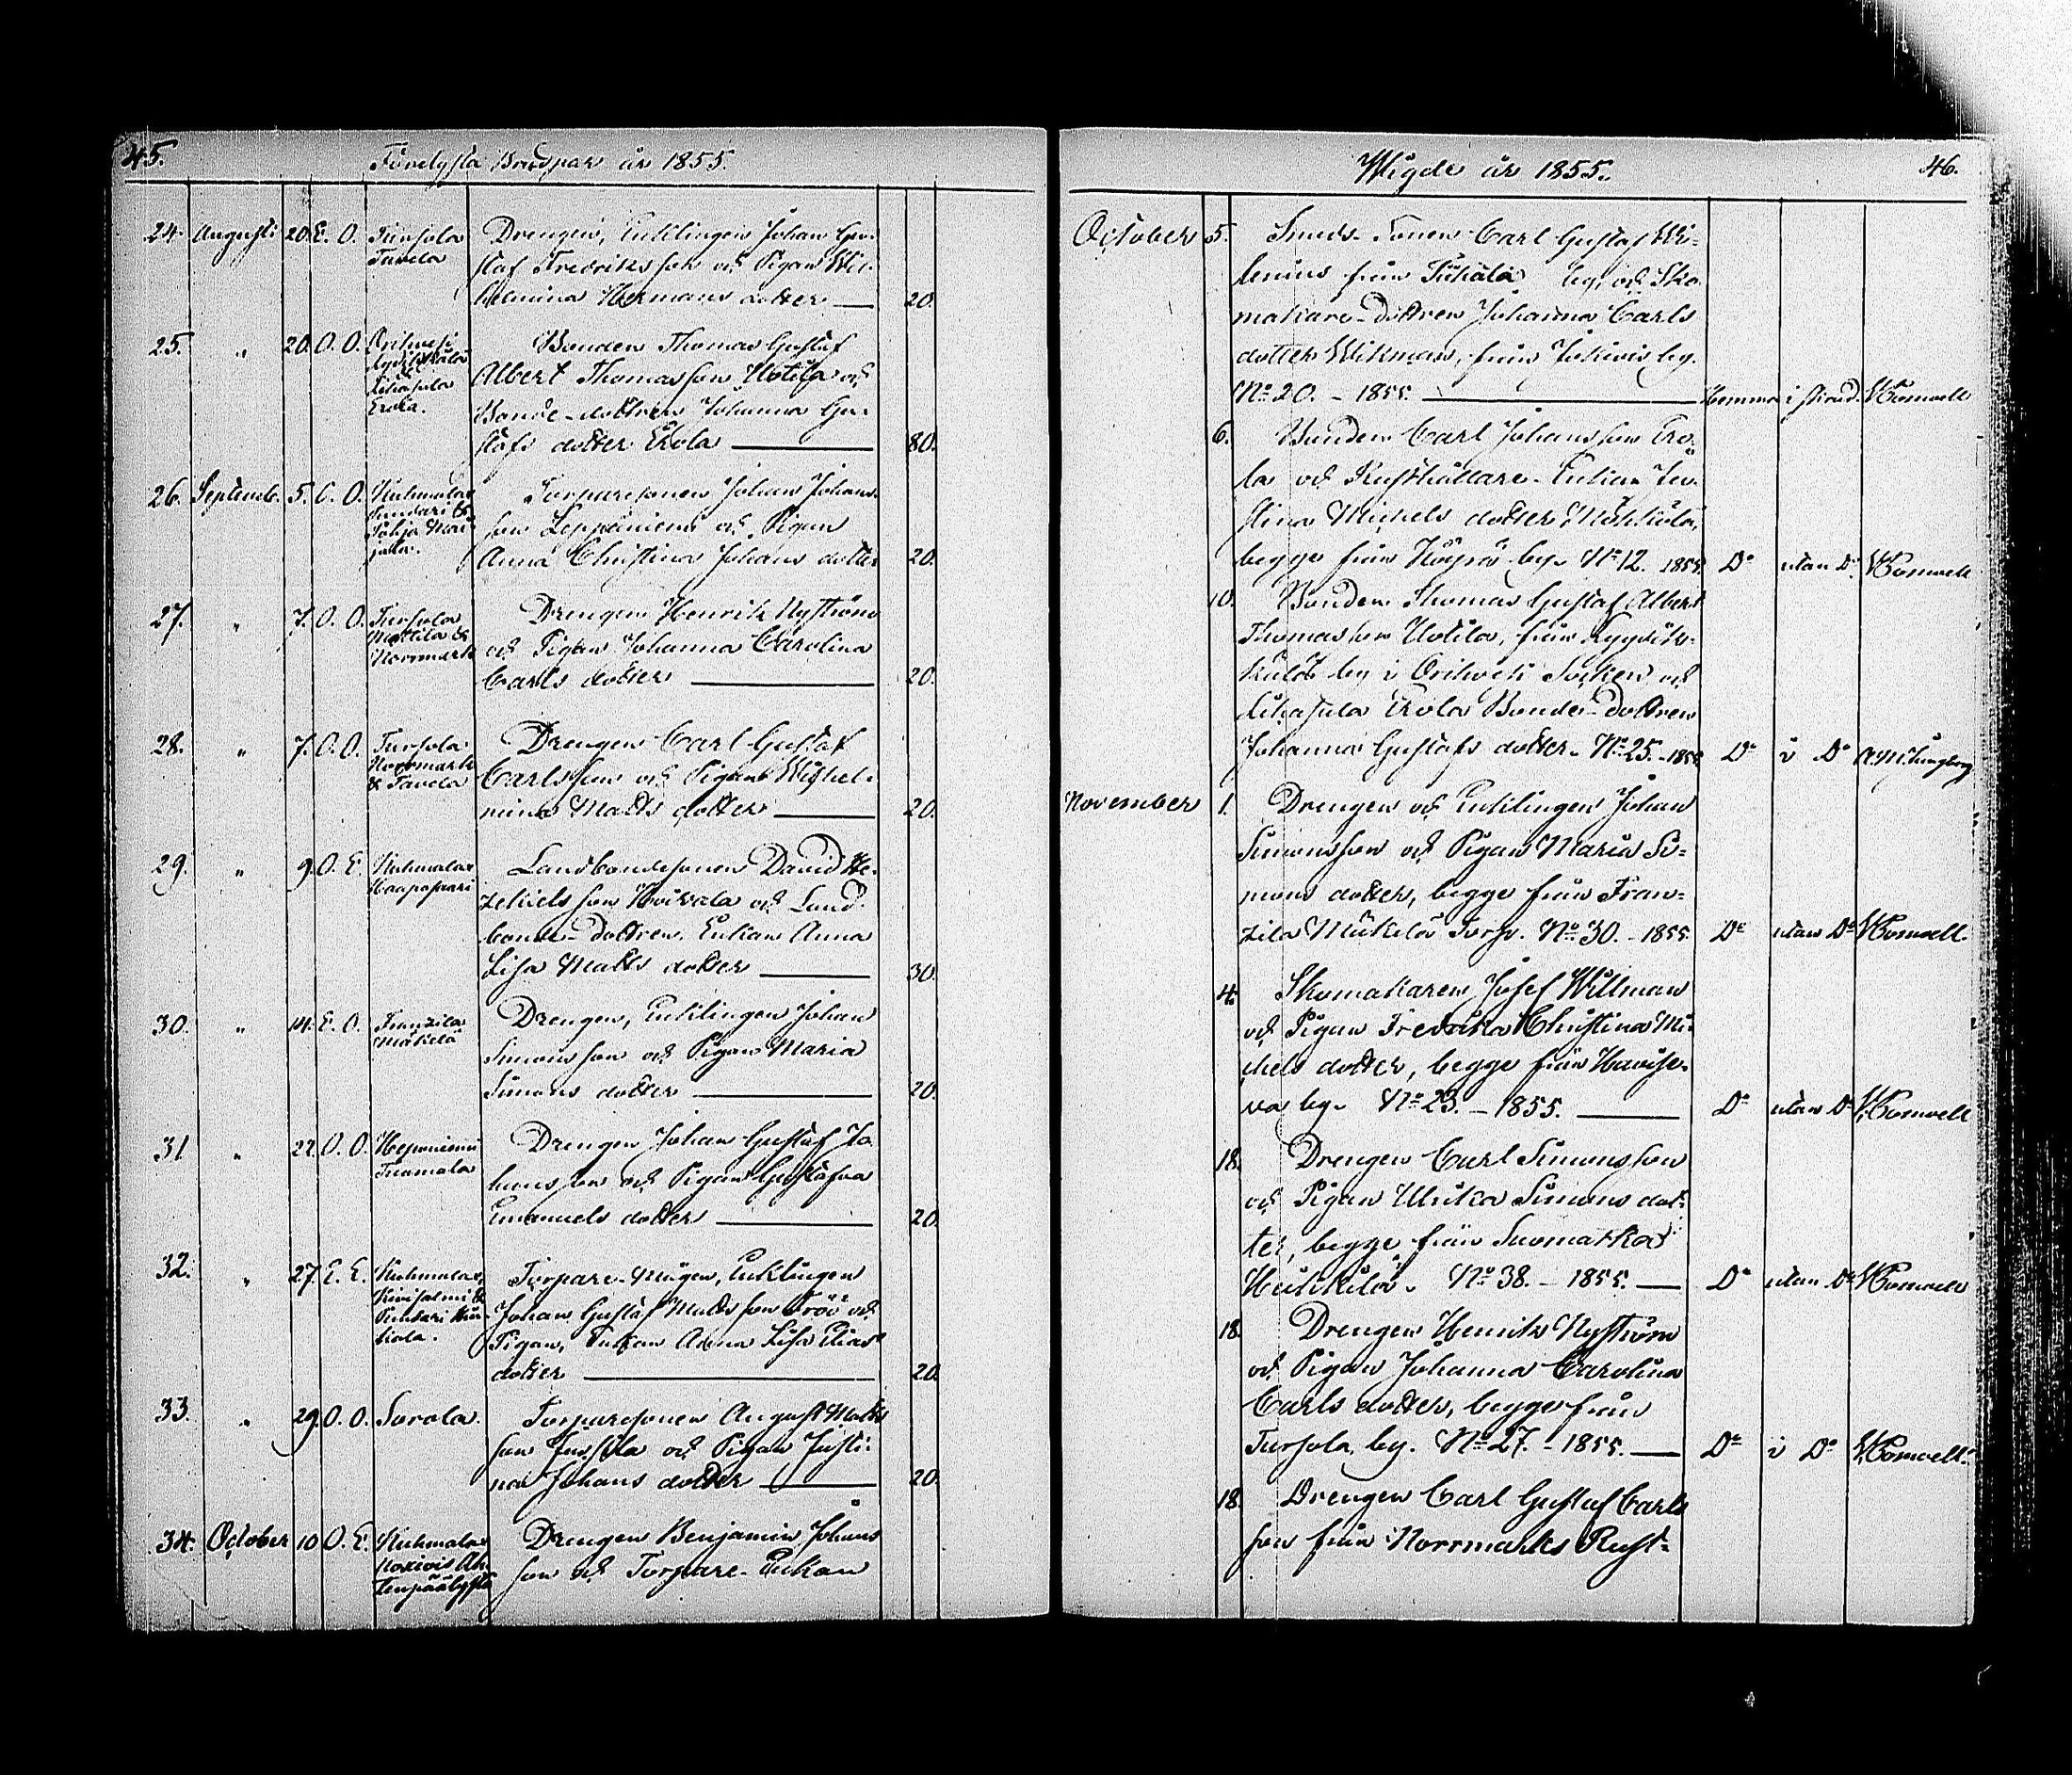 45.
Förelysta Brudpar år 1855.
24. Augusti 20. E. O. Tursola
Tavela
Drengen, Enklingen Johan Gu-
staf Fredriksson och Pigan Wil-
helmina Hermans dotter — 20.
25. " 20. O. O. Orihvesi
Erola.
Bonden Thomas Gustaf
Albert Thomasson Uotila och
Bonde-dottren Johanna Gu-
stafs dotter Erola — 80.
26. Septemb. 5. O. O. Kuhmalax
Torparesonen Johan Johans-
son Leppäniemi och Pigan
Anna Christina Johans dotter 20.
27. " 7. O. O. Tursola
Mattila &
Norrmark
Drengen Henrik Nyström
och Pigan Johanna Carolina
Carls dotter — 20.
28. " 7. O. O. Tursola
Norrmark
& Tavela
Drengen Carl Gustaf
Carlsson och Pigan Wilhel-
mina Matts dotter — 20.
29. " 9. O. E. Kuhmalax
Haapasaari
Landbondesonen David He-
zekielsson Koivala och Land-
bonde-dottren, Enkan Anna
Lisa Matts dotter — 30.
30. " 14. E. O. Franzila
Mäkelä
Drengen, Enklingen Johan
Simonsson och Pigan Maria
Simons dotter — 20.
31 " 22. O. O. Heponiemi
Tuomala
Drengen Johan Gustaf Jo-
hansson och Pigan Gustafva
Emanuels dotter — 20.
32. " 27. E. E. Kuhmalax,
Torpare-Mågen, Enklingen
Johan Gustaf Mattsson Frö och
Pigan, Enkan Anna Lisa Elias
dotter — 20.
33. " 29. O. O. Sorola.
Torparesonen August Matts
son Jussila och Pigan Justi-
na Johans dotter — 20.
34. October 10 O. E. Kuhmalax
Drengen Benjamin Johans
son och Torpare-Enkan
Wigde år 1855.
46.
October 5. Smeds-Sonen Carl Gustaf Wi-
lenius från by, och Sko-
makare-dottren Johanna Carls
dotter Wikman, från Jokivis by.
No 20. - 1855. — Hemma i stånd. W. Comvell
6. Bonden Carl Johansson Ero-
la och Rusthållare-Enkan Ju-
stina Michels dotter
begge från by. No 12. 1855. Do utan Do W. Comvell
10. Bonden Thomas Gustaf Albert
Thomasson Uotila, från
by i Orihvesi Socken och
Erola Bonde-Dottren
Johanna Gustafs dotter. No 25. - 1855. Do i Do
November 1. Drengen och Enklingen Johan
Simonsson och Pigan Maria Si-
mons dotter, begge från Fran-
zila Mäkelä Torp. No 30. - 1855. Do utan Do W. Comvell.
4. Skomakaren Josef Willman
och Pigan Fredrika Christina Mi-
chels dotter, begge från Havise-
va by. No 23. - 1855. — Do utan Do W. Comvell
18. Drengen Carl Simonsson
och Pigan Ulrika Simons dot-
ter, begge från Suomatka
No 38. - 1855. — Do utan Do W. Comvell
18. Drengen Henrik Nyström
och Pigan Johanna Carolina
Carls dotter, begge från
Tursola by. No 27. - 1855. — Do i Do W. Comvell.
18. Drengen Carl Gustaf Carls
son från Norrmarks Rust-